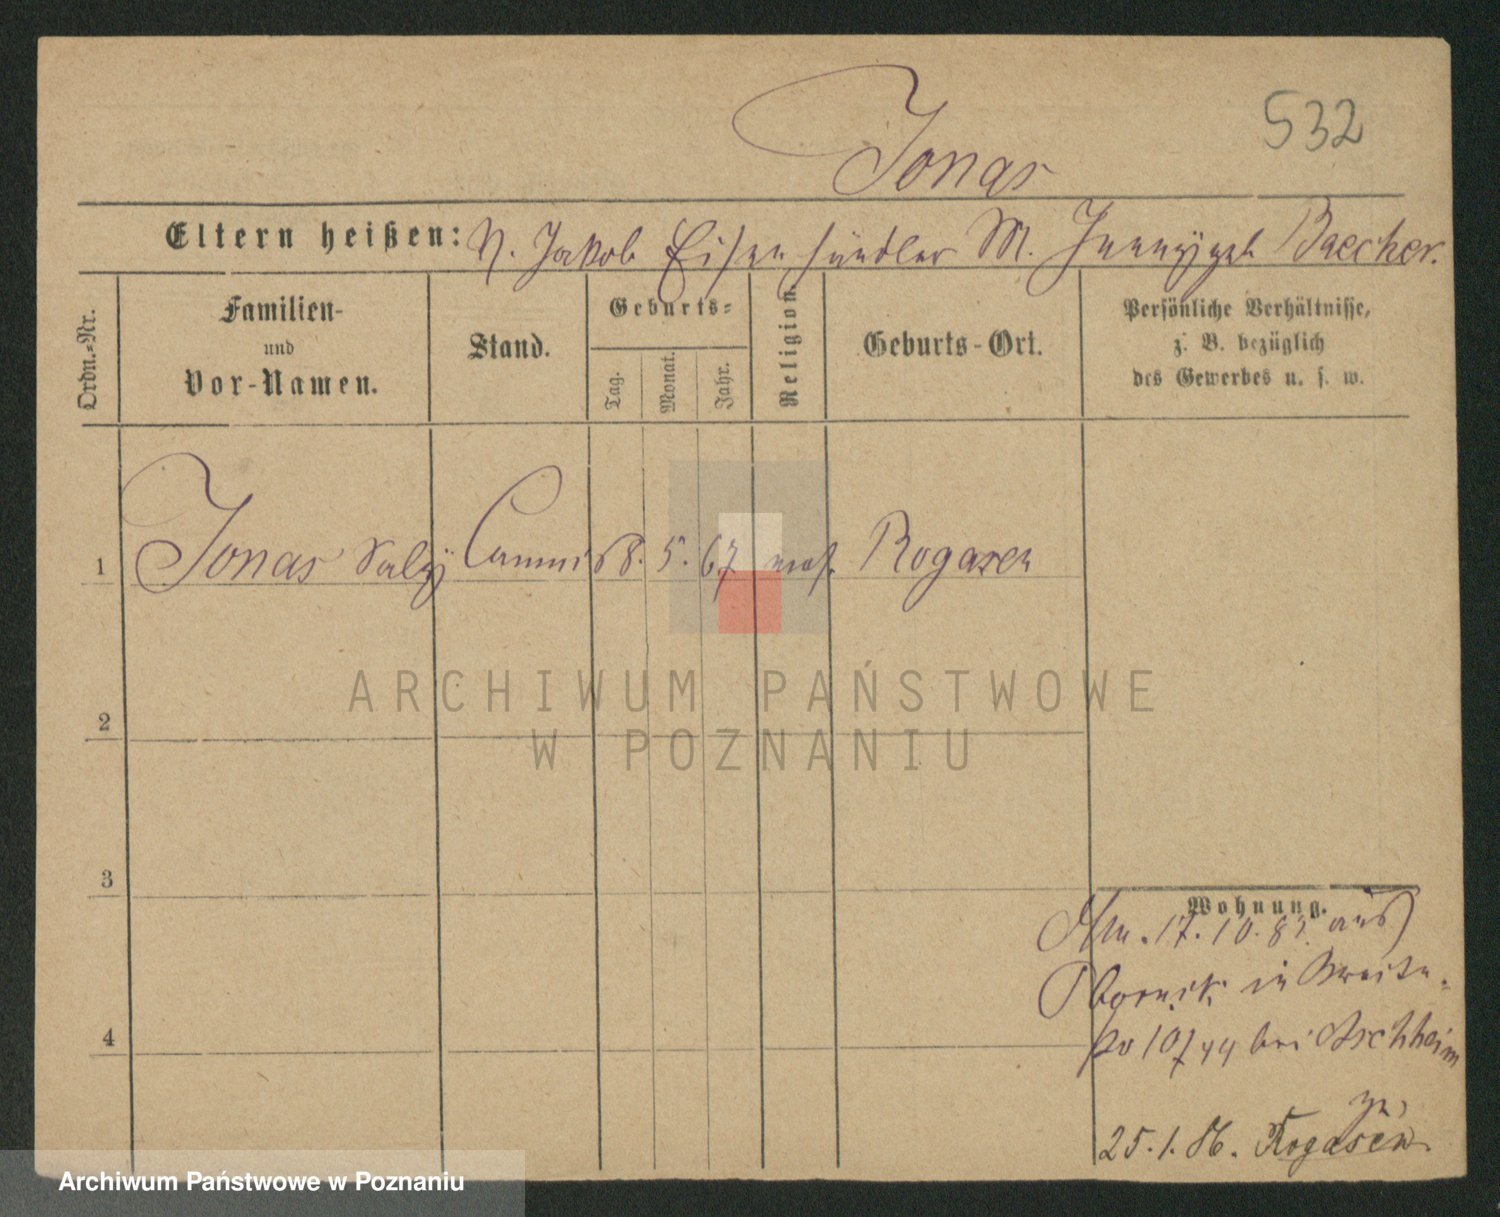 532
Jonas
Eltern heißen: V. Jakob Eisenhändler M. Jenny geb Baecher.
Ordn.-Nr.
Familien-
und
Vor-Namen.
Stand.
Geburts-
Tag.
Monat.
Jahr.
Religion.
Geburts-Ort.
Persönliche Verhältnisse,
z. B. bezüglich
des Gewerbes u. s. w.
1 Jonas Saly Commis 8. 5. 67 mos. Rogasen
ARCHIWUM PAŃSTWOWE
W POZNANIU
2
3
4
Wohnung.
17. 10. 83. aus
Obornik in Breite-
10/44 bei Aschheim
zu,
25.1.86. Rogasen
Archiwum Państwowe w Poznaniu